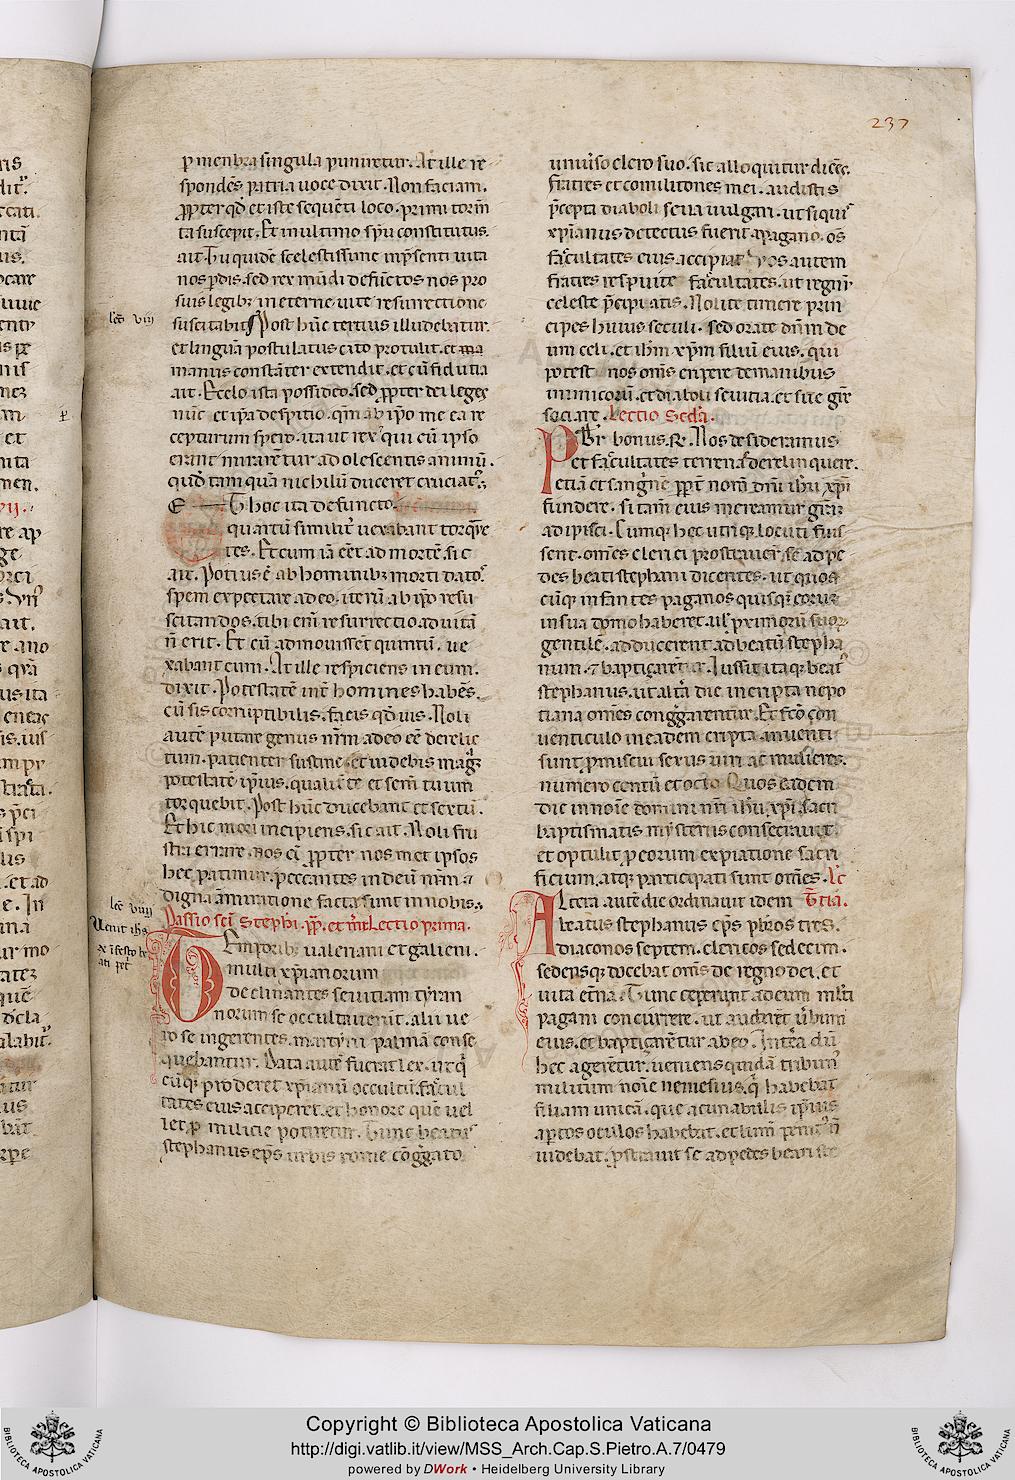 237
p menbra singula puniretur. At ille re
spondēs patria uoce dixit. Non faciam.
ꝓpter qd̄ et iste sequēti loco. primi torm̄
ta suscepit. Et in ultimo spū constitutus.
ait. Tu quidē scelestissime inp̄senti uita
nos ꝑdis. sed rex mūdi defūctos nos pro
suis legibꝫ in eterne uite resurrectione
suscitabit. Post hūc tertius illudebatur.
et linguā postulatus cito protulit. et ma
manus constāter extendit. et cū fidutia
ait. E celo ista possideo. sed ꝓpter dei leges
nūc et ip̄a despitio. qm̄ ab ip̄o me ea re
cepturum spero. ita ut rex qui cū ipso
erant mirarētur adolescentis animū.
quod tam quā nichilū duceret cruciatꝰ.
ET hoc ita defuncto.
quartū similiter uexabant torque
tes. Et cum iā eēt ad mortē. sic
ait. Potius ē ab hominibꝫ morti datos
spem expectare a deo. iterū ab ip̄o resu
scitandos. tibi enī resurrectio ad uitā
n̄ erit. Et cū admouissēt quintū. ue
xabant eum. At ille respiciens in eum.
dixit. Potestatē int̄ homines habēs.
cū sis corruptibilis. facis qd̄ uis. Noli
autē putare genus nrm̄ a deo eē derelic
tum. patienter sustine. et uidebis magͣ
potestatē ip̄ius. qualit̄ te et sem̄ tuum
torquebit. Post hūc ducebant et sextū.
Et hic mori incipiens. sic ait. Noli fru
stra errare. nos eī ꝓpter nosmet ipsos
hec patimur. peccantes in deū nrm̄. ⁊
digna āmiratione facta sunt in nobis.
Passio sc̄i Stephi. pp̄. et mr̄. Lectio prima.
TEmporibꝫ ualeriani et galieni.
multi xp̄ianorum
declinantes seuitiam tyran
norum se occultauerūt. alii ue
ro se ingerentes. martyrii palmā conse
quebantur. Data autē fuerat lex. ut qͥ
cūqꝫ proderet xp̄ianū occultū. facul
tates eius acciperet. et honore quē uel
let. ꝑ milicie potiretur. Tunc beatus
stephanus ep̄s urbis rome cōg̃gato
lec̄ viij
lec̄ viiij
uniuerso clero suo. sic alloquitur dicēs.
fratres et comilitones mei. audistis
p̄cepta diaboli seua uulgari. ut si quis
xp̄ianus detectus fuerit a pagano. om̄s
facultates eius accipiat. Vos autem
fratres respuite facultates. ut regnū
celeste p̄cipiatis. Nolite timere prin
cipes huius seculi. sed orate dn̄m de
um celi. et ih̄m xp̄m filiū eius. qui
potest nos om̄s eripere de manibus
inimicorū. et diaboli seuitia. et sue gr̄e
sociare. Lectio Scd̄a.
PBr̄ bonus. R̄. Nos desideramus
et facultates terrenas derelinquere.
etiā et sanguinē ꝓpt̄ nom̄ dn̄i ih̄u xp̄i
fundere. si tam̄ eius mereamur gr̄am
adipisci. Cumqꝫ hec utrīqꝫ locuti fuis
sent. om̄es clerici prostrauer̄ se ad pe
des beati stephani dicentes. ut quos
cūqꝫ infantes paganos quisqꝫ eorum
in sua domo haberet. uel p̄ximorū suorꝫ
gentile. adducerent ad beatū stepha
num. ⁊ baptiçarētur. Iussit itaqꝫ beatꝰ
stephanus. ut alt̄a die in cripta nepo
tiana om̄es cong̃garentur. Et fc̄o con
uenticulo in eadem cripta inuenti
sunt promiscui sexus uiri ac mulieres.
numero centū et octo. Quos eadem
die in noīe domini nr̄i ih̄u xp̄i. sacri
baptismatis mysteriis consecrauit.
et optulit p eorum expiatione sacri
ficium. atqꝫ participati sunt om̄es. Lc̄
ALtera autē die ordinauit idem T̄tia.
beatus stephanus ep̄s pb̄ros tres.
diaconos septem. clericos sedecim.
sedensqꝫ docebat om̄s de regno dei. et
uita et̄na. Tunc ceperunt ad eum mlt̄i
pagani concurrere. ut audirēt uerbum
eius. et bapticarētur ab eo. Int̄ea dū
hec agerētur. ueniens quidā tribunꝰ
militum noīe nemesius. qͥ habebat
filiam unicā. que a cunabulis ip̄sius
apertos oculos habebat. et lumē penitꝰ n̄
uidebat. ꝓstrauit se ad pedes beati ste
Copyright © Biblioteca Apostolica Vaticana
http://digi.vatlib.it/view/MSS_Arch.Cap.S.Pietro.A.7/0479
powered by DWork • Heidelberg University Library
BIBLIOTECA APOSTOLICA VATICANA
BIBLIOTECA APOSTOLICA VATICANA